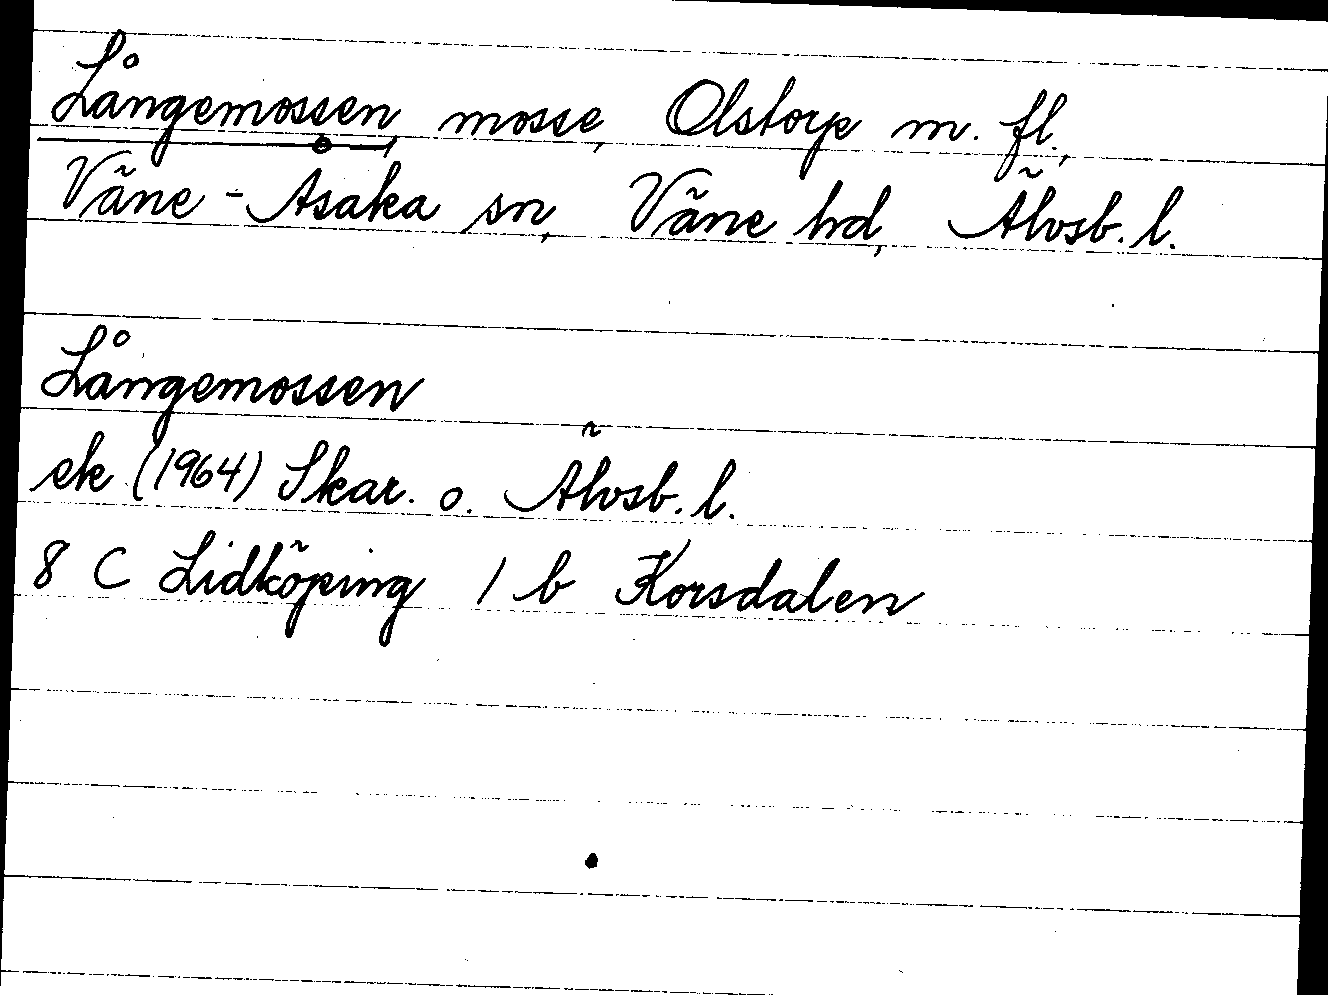 Långemossen, mosse, Olstorp m. fl.,
Väne-Åsaka sn, Väne hd, Älvsb. l.
Långemossen
ek (1964) Skar. o. Älvsb. l.
8 C Lidköping 1 b Korsdalen